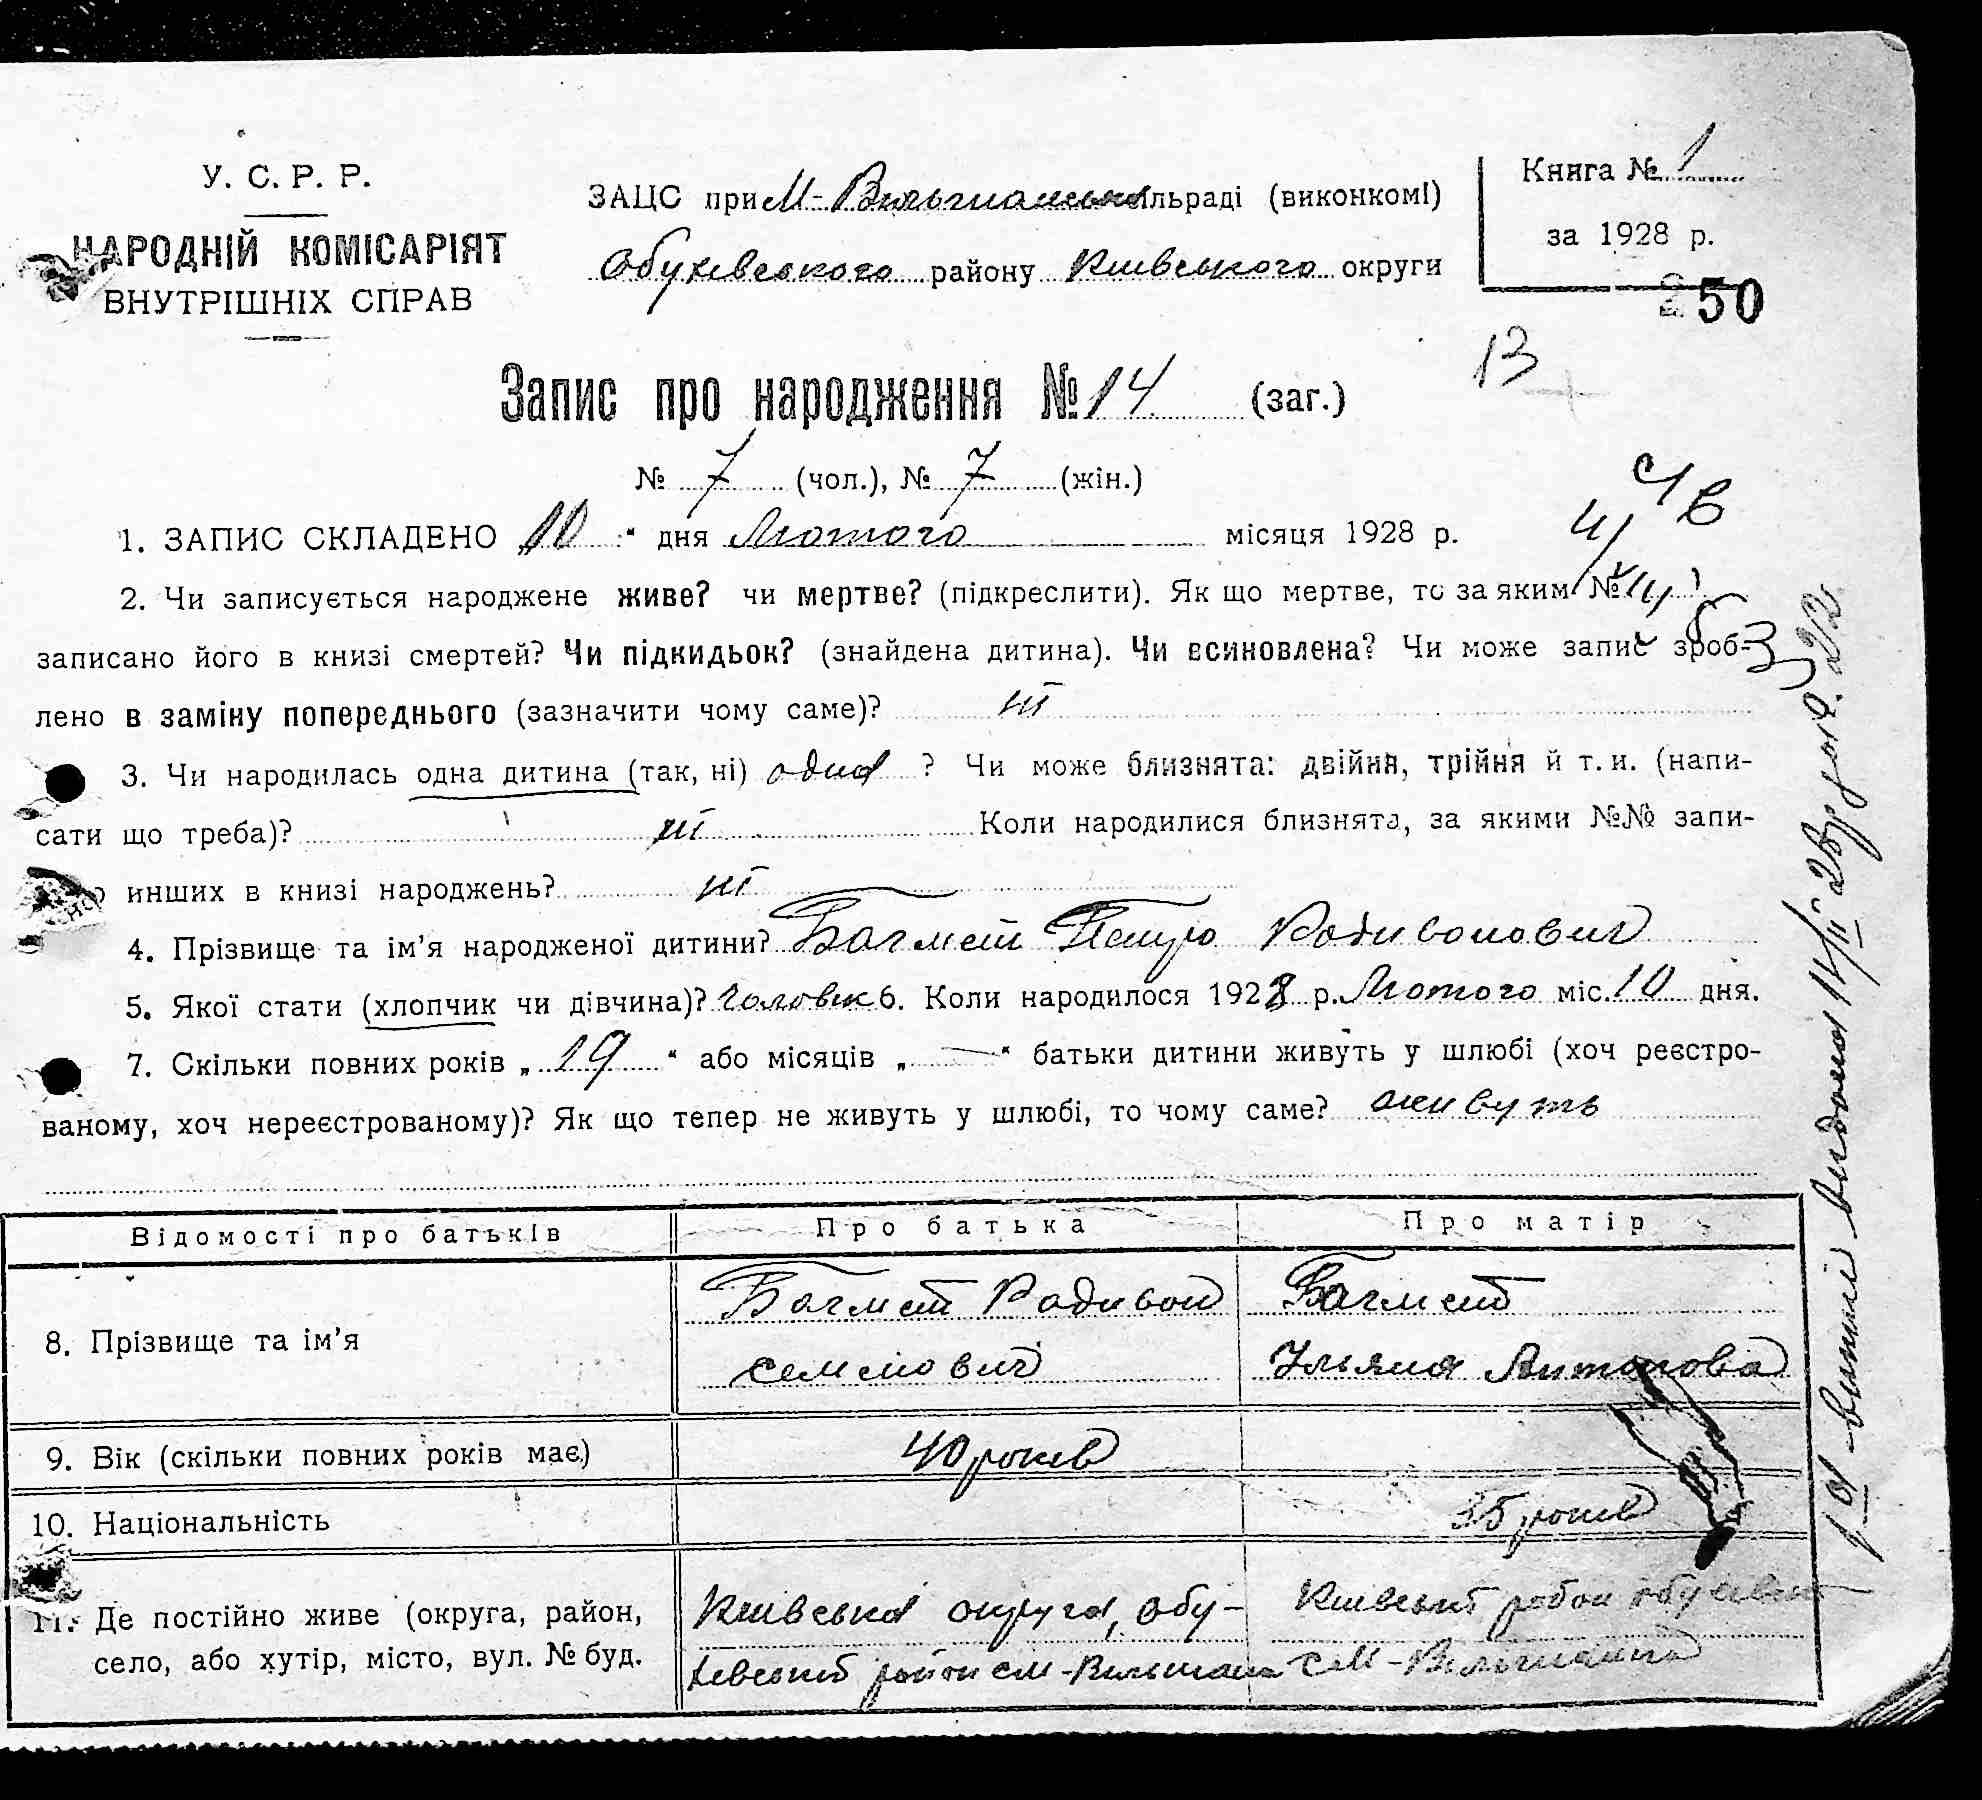 У. С. Р. Р.
НАРОДНІЙ КОМІСАРІЯТ
ВНУТРІШНІХ СПРАВ
ЗАЦС при М-Вильшанській сільраді (виконкомі)
Обухівського району Київського округи
Книга № 1
за 1928 р.
250
13
Запис про народження № 14 (заг.)
№ 7 (чол.), № 7 (жін.)
1. ЗАПИС СКЛАДЕНО 10 " дня Лютого місяця 1928 р.
2. Чи записується народжене живе? чи мертве? (підкреслити). Як що мертве, то за яким №
записано його в книзі смертей? Чи підкидьок? (знайдена дитина). Чи всиновлена? Чи може запис зроб-
лено в заміну попереднього (зазначити чому саме)? ні
3. Чи народилась одна дитина (так, ні) одна ? Чи може близнята: двійня, трійня й т. и. (напи-
сати що треба)? ні Коли народилися близнята, за якими №№ запи-
инших в книзі народжень? ні
4. Прізвище та ім'я народженої дитини? Багмет Петро Радивонович
5. Якої стати (хлопчик чи дівчина)? Чоловік 6. Коли народилося 1928 р. Лютого міс. 10 дня.
7. Скільки повних років „ 19 " або місяців „ — " батьки дитини живуть у шлюбі (хоч реєстро-
ваному, хоч нереєстрованому)? Як що тепер не живуть у шлюбі, то чому саме? живуть
Відомості про батьків Про батька Про матір
8. Прізвище та ім'я
Багмет Радивон
Семенович
Багмет
Ульяна Антонова
9. Вік (скільки повних років має) 40 років
10. Національність 35 років
11. Де постійно живе (округа, район,
село, або хутір, місто, вул. № буд.
Київська округа, Обу-
хівський район с М-Вильшанка
с М-Вильшанка